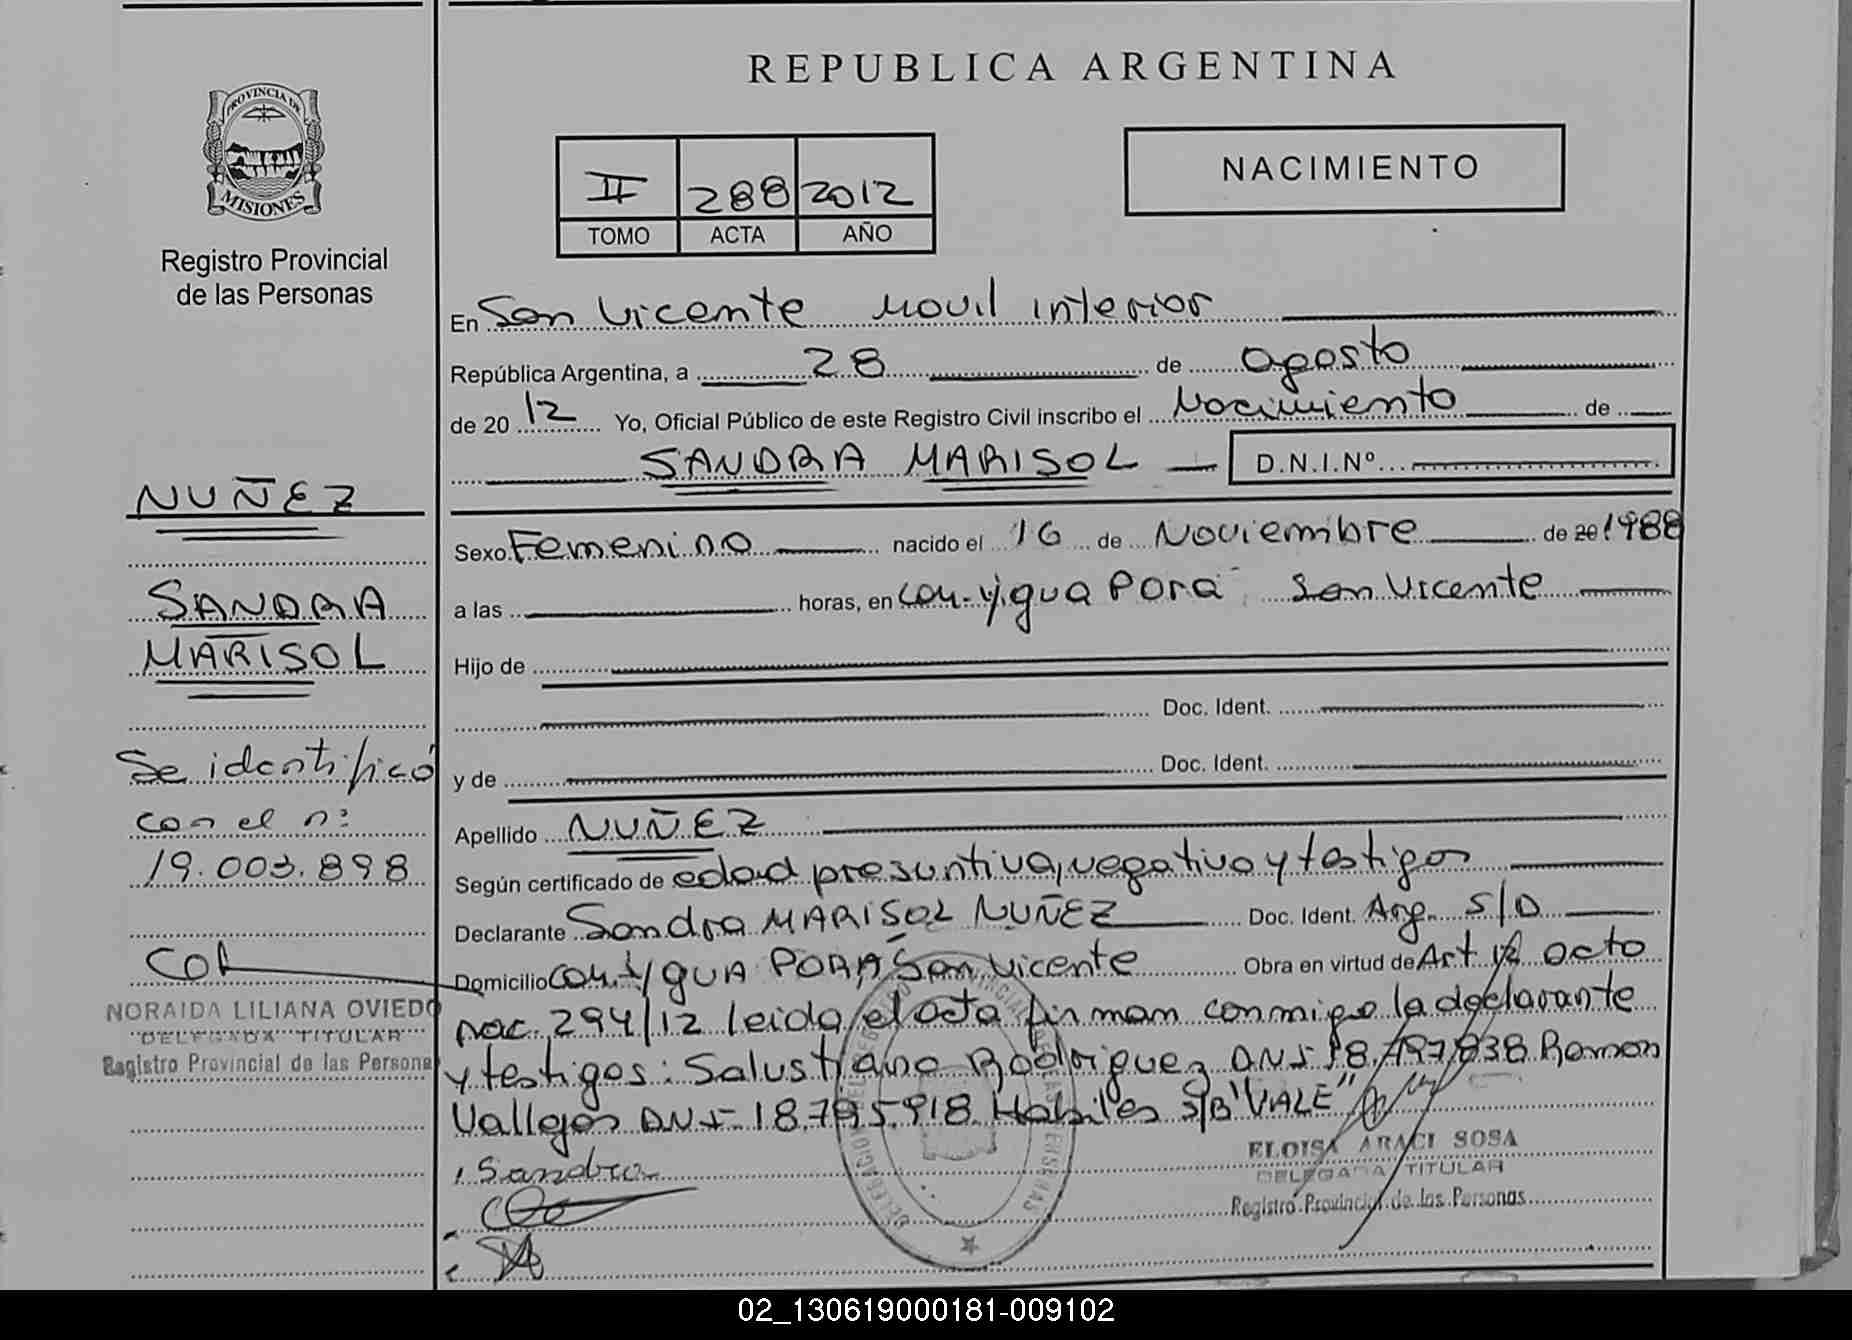 REPUBLICA ARGENTINA
PROVINCIA DE
MISIONES
Registro Provincial
de las Personas
II 288 2012
TOMO ACTA AÑO
NACIMIENTO
En San Vicente Movil interior
República Argentina, a 28 de agosto
de 20 12 Yo, Oficial Público de este Registro Civil inscribo el Nacimiento de
SANDRA MARISOL D.N.I.Nº
Sexo Femenino nacido el 16 de Noviembre de 20 1988
a las horas, en Com. Yigua Pora San Vicente
Hijo de
Doc. Ident.
y de Doc. Ident.
Apellido NUÑEZ
Según certificado de edad presuntiva, negativo y testigos
Declarante Sandra MARISOL NUÑEZ Doc. Ident. Arg. S/D
Domicilio Com. YGUA PORA San Vicente Obra en virtud de Art 12 acto
nac. 294/12 leida el acta firman conmigo la declarante
y testigos: Salustiano Rodriguez DNI 18.797.838 Ramon
Vallejos DNI 18.795.918 Habiles S/B "VALE"
Sandra
ELOISA ARACI SOSA
DELEGADA TITULAR
Registro Provincial de las Personas
NUÑEZ
SANDRA
MARISOL
Se identificó
con el nº
19.003.898
NORAIDA LILIANA OVIEDO
DELEGADA TITULAR
Registro Provincial de las Persona
02_130619000181-009102